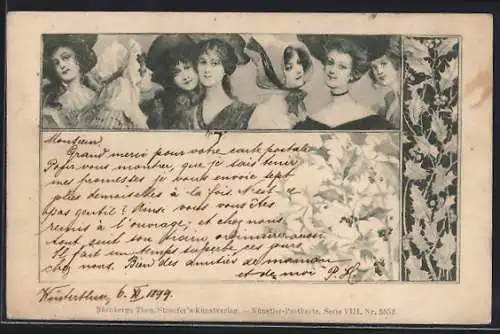 Monsieur
Grand merci pour votre carte postale.
Pour vous montrer, que je sais tenir
mes promesses je vous envoie sept
jolies demoiselles à la fois. N'est-ce
pas gentil? Ainsi vous vous êtes
remis à l'ouvrage; et chez nous
tout suit son
Il fait un temps superbe ces jours
chez nous. Bien des amitiés de maman
et de moi P. H.
Winterthur, 6. XI 1899.
Nürnbergs Theo. Stroefer's Kunstverlag. — Künstler-Postkarte. Serie VIII, Nr. 5552.